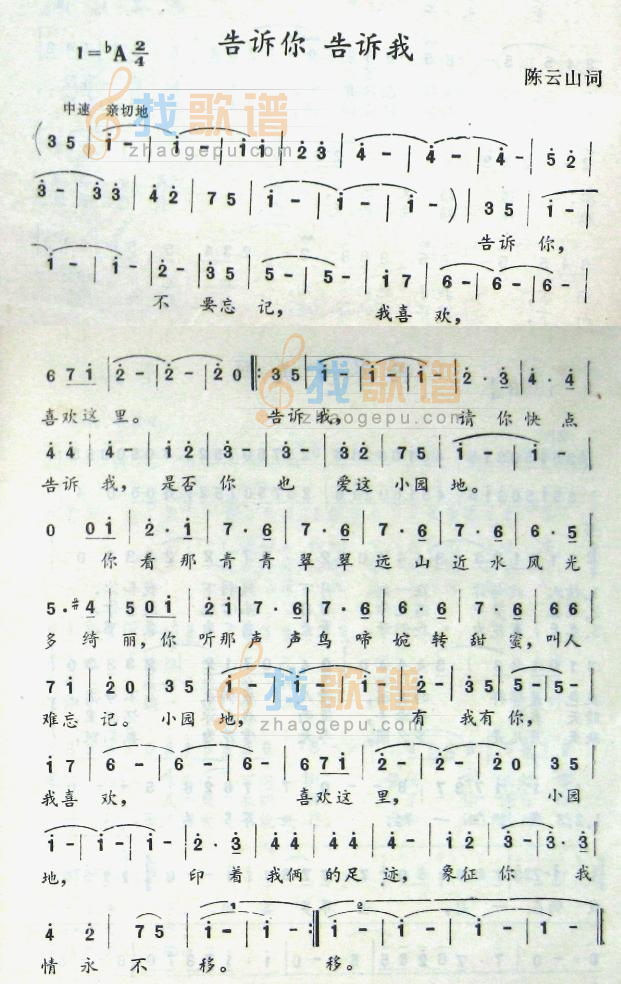 告诉你 告诉我
1=♭A 2/4
陈云山词
中速 亲切地
找歌谱
zhaogepu.com
(3 5 | i - | i - | i i | 2 3 | 4 - | 4 - | 4 - | 5 2 |
3 - | 3 3 | 4 2 | 7 5 | i - | i - | i - ) | 3 5 | i - |
告诉 你,
i - | i - | 2 - | 3 5 | 5 - | 5 - | i 7 | 6 - | 6 - | 6 - |
不 要忘 记, 我喜 欢,
6 7 i | 2 - | 2 - | 2 0 ‖: 3 5 | i - | i - | i - | 2 · 3 | 4 · 4 |
喜欢这 里。 告诉 我, 请 你快 点
找歌谱
zhaogepu.com
4 4 | 4 - | i 2 | 3 - | 3 - | 3 2 | 7 5 | i - | i - |
告诉 我, 是否 你 也 爱这 小园 地。
0 0 i | 2 · i | 7 · 6 | 7 · 6 | 7 · 6 | 7 · 6 | 7 · 6 | 6 · 5 |
你 看那 青青 翠翠 远山 近水 风光
5 · #4 | 5 0 i | 2 i | 7 · 6 | 7 · 6 | 7 · 6 | 7 · 6 | 6 6 |
多绮 丽,你 听那 声声 鸟啼 婉转 甜蜜,叫人
7 i | 2 0 | 3 5 | i - | i - | i - | 2 - | 3 5 | 5 - | 5 - |
难忘 记。 小园 地, 有 我有 你,
找歌谱
zhaogepu.com
i 7 | 6 - | 6 - | 6 - | 6 7 i | 2 - | 2 - | 2 0 | 3 5 |
我喜 欢, 喜欢这 里, 小园
i - | i - | i - | 2 · 3 | 4 4 | 4 4 | 4 - | i 2 | 3 - | 3 · 3 |
地, 印着 我俩 的足 迹, 象征 你 我
4 2 | 7 5 | i - | i - :‖ i - | i - | i - ‖
1 2
情永 不 移。 移。